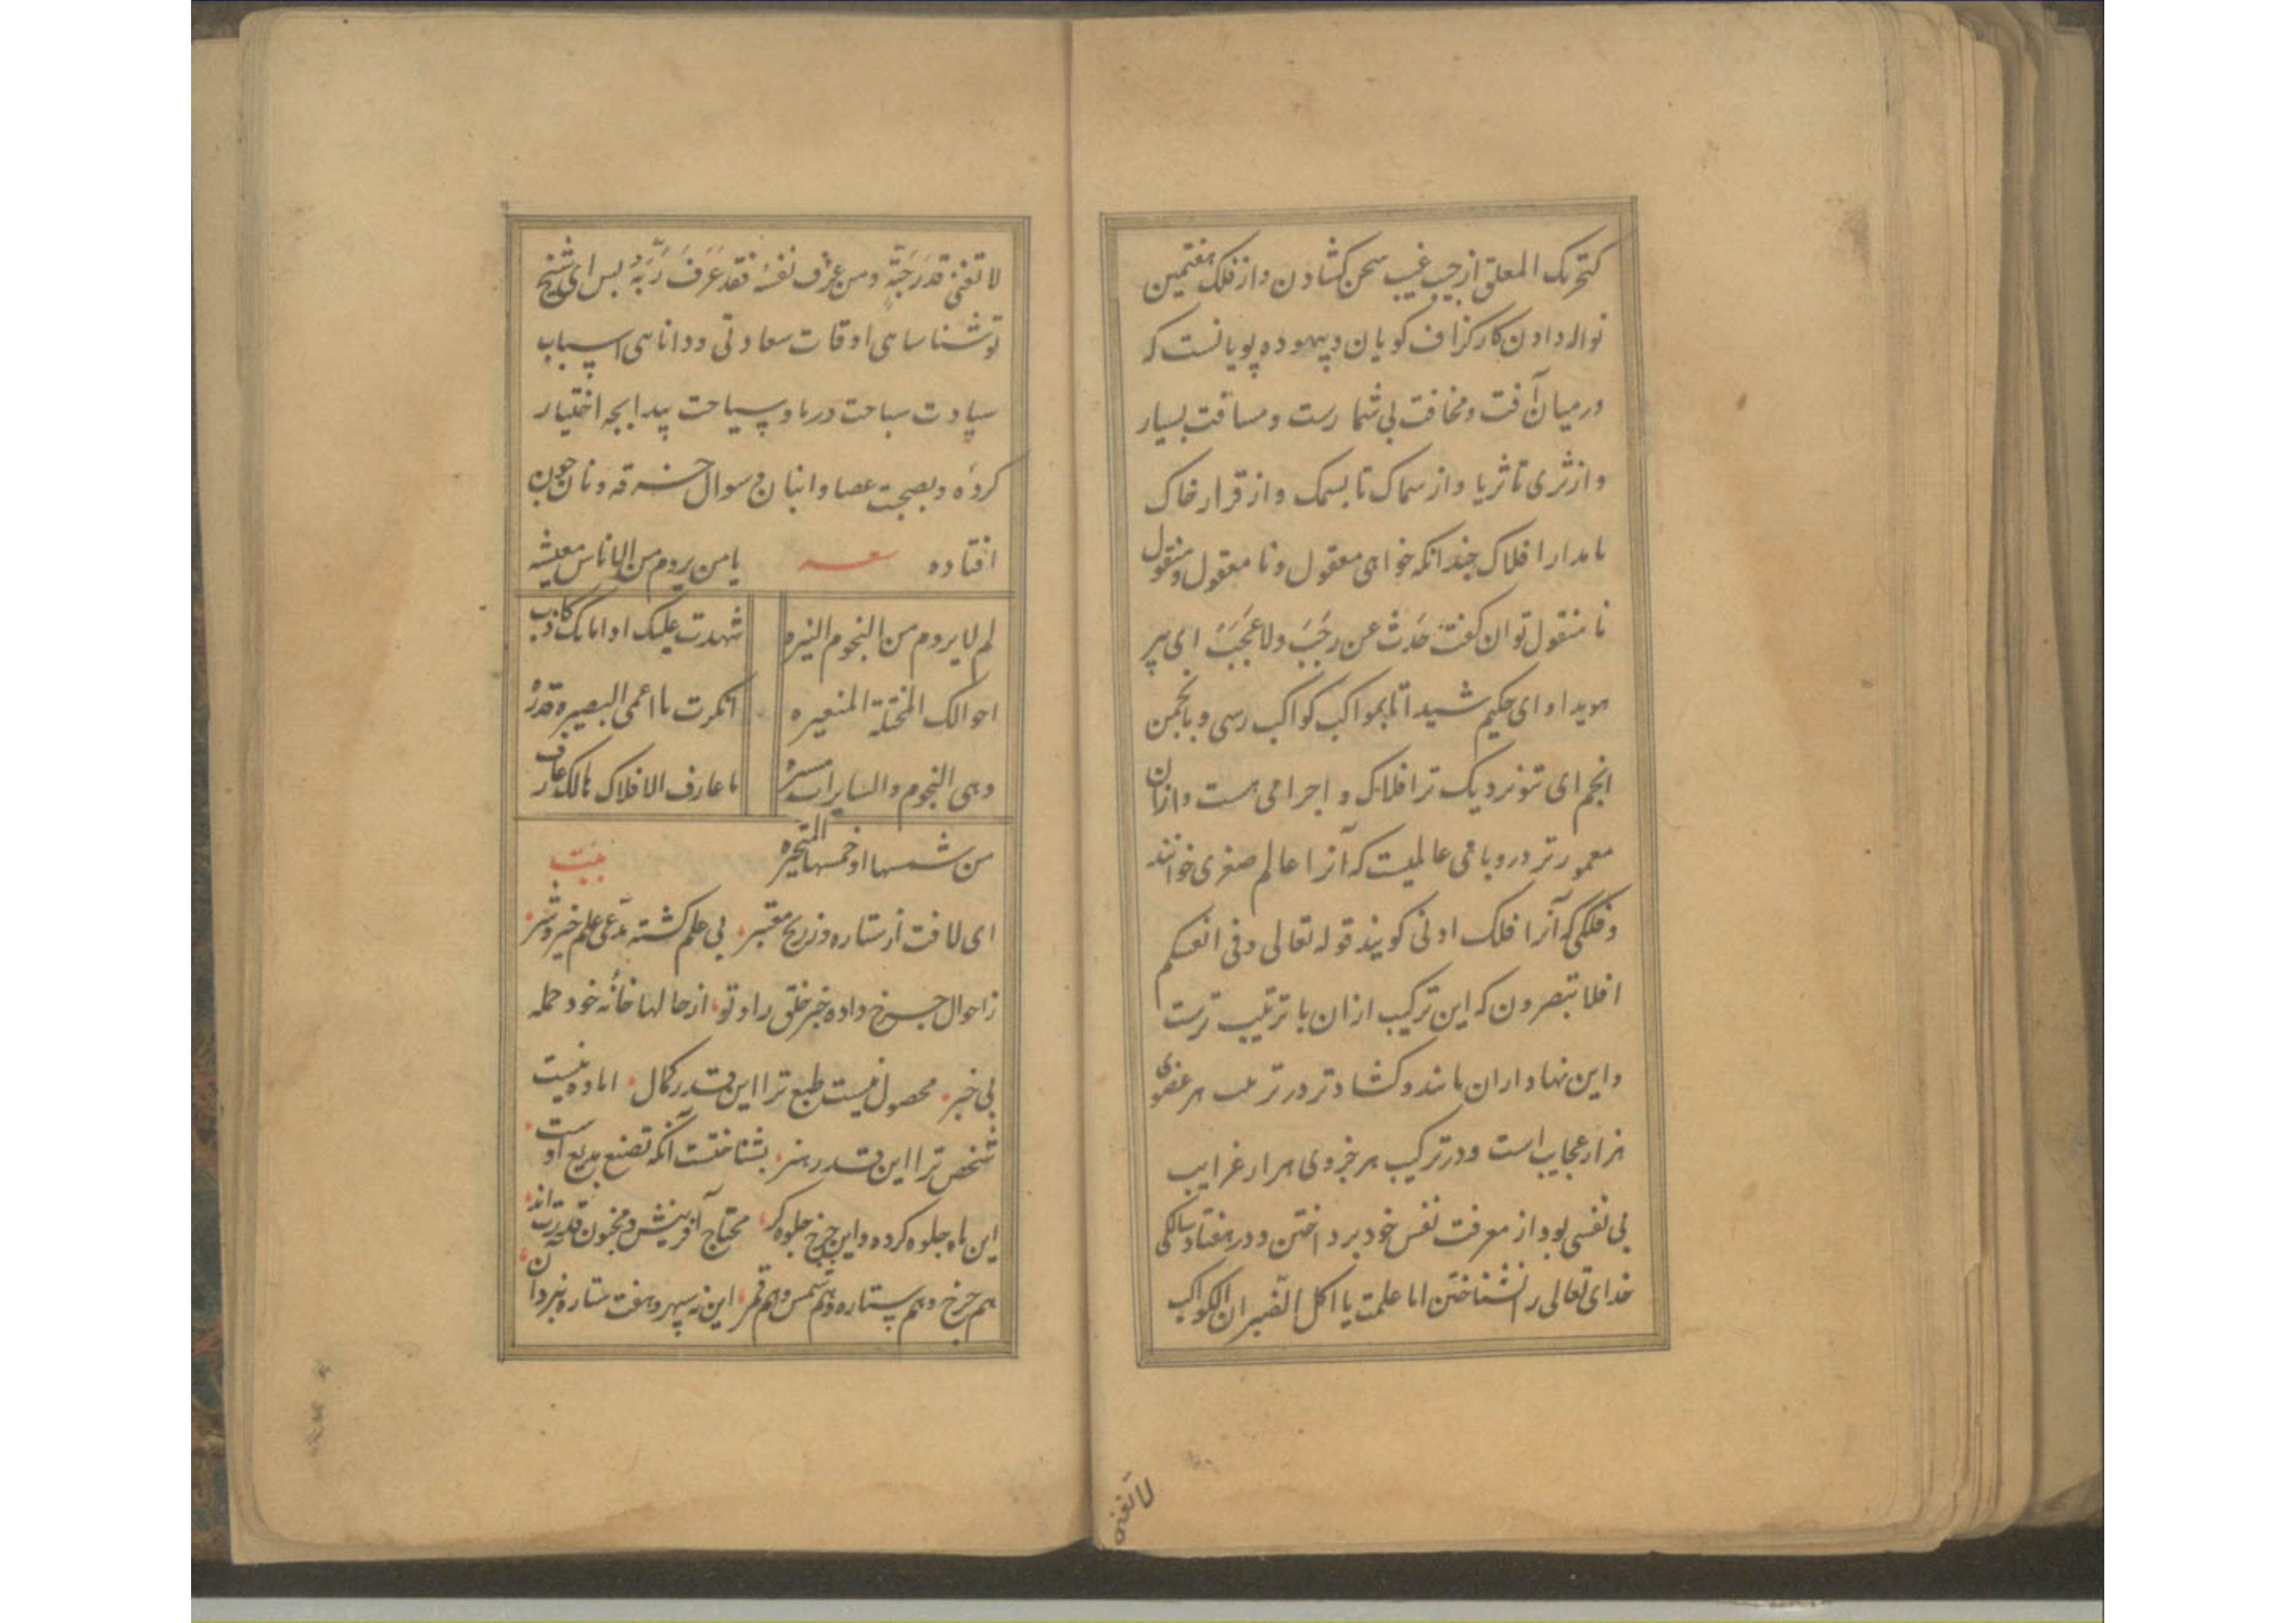 کتحریک المعلق از جیب غیب سخن کشادن و از فلک هفتمین
نواله دادن کار کزاف کویان و بیهوده پویانست که
در میان آفت و مخافت بی شمارست و مسافت بسیار
و از ثری تا ثریا و از سماک تا بسمک و از قرار خاک
تا مدار افلاک چندانکه خواهی معقول و نا معقول و منقول
نا منقول توان کفت حدث عن رجب و لا عجب ای پیر
هویدا و ای حکیم شیدا تا بمواکب کواکب رسی و بانجمن
انجم ای بتو نزدیک تر افلاک و اجرامی هست و ازان
معمورتر در و باقی عالمیست که آنرا عالم صغری خوانند
و فلکی که آنرا فلک ادنی کویند قوله تعالی و فی انفسکم
افلا تبصرون که این ترکیب ازان با ترتیب ترست
و این نهاد ازان ماند و کشادتر در ترتیب هر عضوی
هزار عجایب است و در ترکیب هر جزوی هزار غرایب
بی نفسی بود از معرفت نفس خود برداختن و در هفتاد سالکی
خدای تعالی را نشناختن اما علمت یا اکل الضب ان الکواکب
لا تغنی
لا تغنی قدر حبة و من عرف نفسه فقد عرف ربه بس ای شیخ
تو شناسای اوقات سعادتی و دانای اسباب
سیادت سباحت دریا و سیاحت بیدا بجه اختیار
کردۀ و بصحبت عصا و انبان و سوال خرقه و نان چون
افتاده شعر یا من یروم من الناس معیشه
لم لا یروم من النجوم النیره شهدت علیک اوامانک کاذب
احوالک المختلة المتغیره انکرت یا اعمی البصیره قدره
و هی النجوم و السایرات مسیره یا عارف الافلاک مالک عارف
من شمسها او خمسها المتحیره بیت
ای لافت از ستاره و زریج مقتبر بی علم کشته مدعی علم خیر و شر
ز احوال چرخ داده خبر خلق را و تو از حالهای خانۀ خود جمله
بی خبر محصول نیست طبع ترا این قدر کمال اماده نیست
شخص ترا این قدر هنر بشناختست آنکه تصنع بدیع اوست
این ماه جلوه کرده و این چرخ جلوه کر محتاج آفرینش و مخبون قدرت اند
هم چرخ و هم ستاره و هم شمس و هم قمر این نه سپهر و هفت ستاره بنزد آن